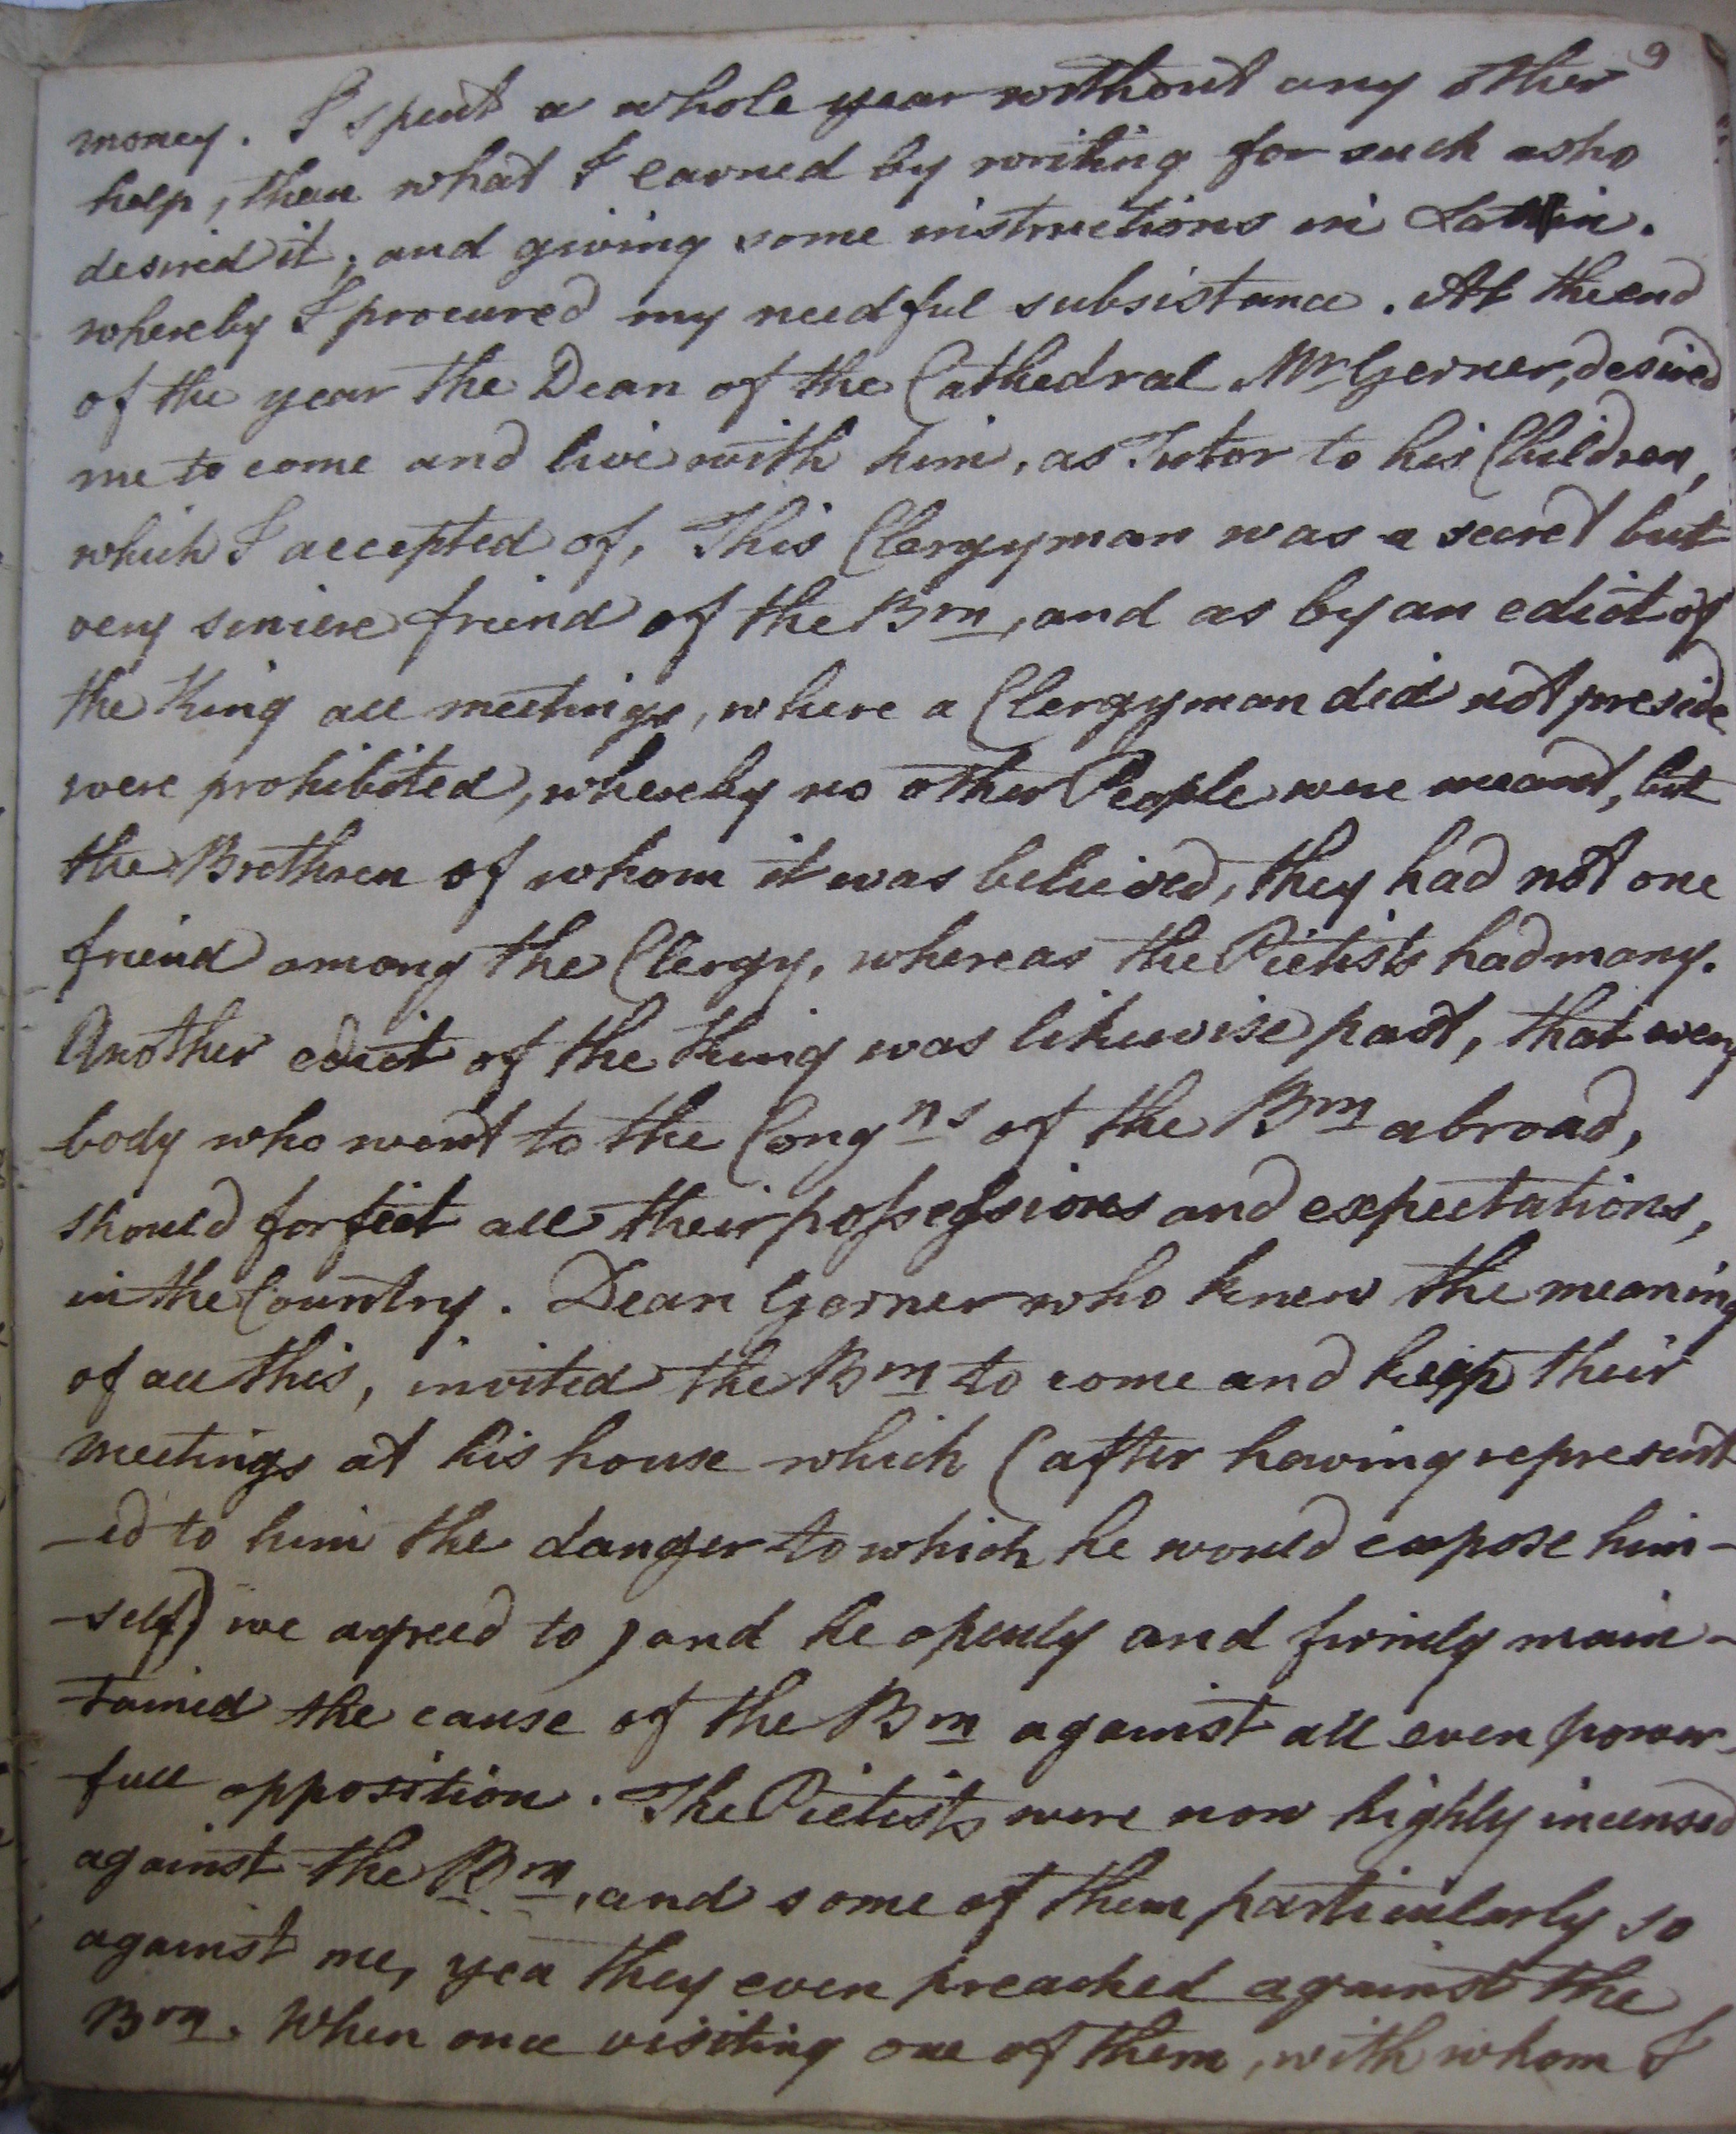 9
money. I spent a whole year without any other
help, than what I earned by writing for such who
desired it, and giving some instructions in Lattin.
whereby I procured my needful subsistance. At the end
of the year the Dean of the Cathedral Mr Gerner, desired
me to come and live with him, as Tutor to his Children,
which I accepted of, This Clergyman was a secret but
very sincere friend of the Brn, and as by an edict of
the King all meetings, where a Clergyman did not preside
were prohibited, whereby no other People were meant, but
the Brethren of whom it was believed, they had not one
friend among the Clergy, whereas the Pietists had many.
Another edict of the King was likewise past, that every
body who went to the Congns of the Brn abroad,
should forfeit all their possessions and expectations,
in the Country. Dean Gerner who knew the meaning
of all this, invited the Brn to come and keep their
meetings at his house which (after having represent
-ed to him the danger to which he would expose him-
-self) we agreed to, and he openly and firmly main-
tained the cause of the Brn against all even power-
full opposition. The Pietists were now highly incensed
against the Brn, and some of them particularly so
against me, yea they even preached against the
Brn. When once visiting one of them, with whom I